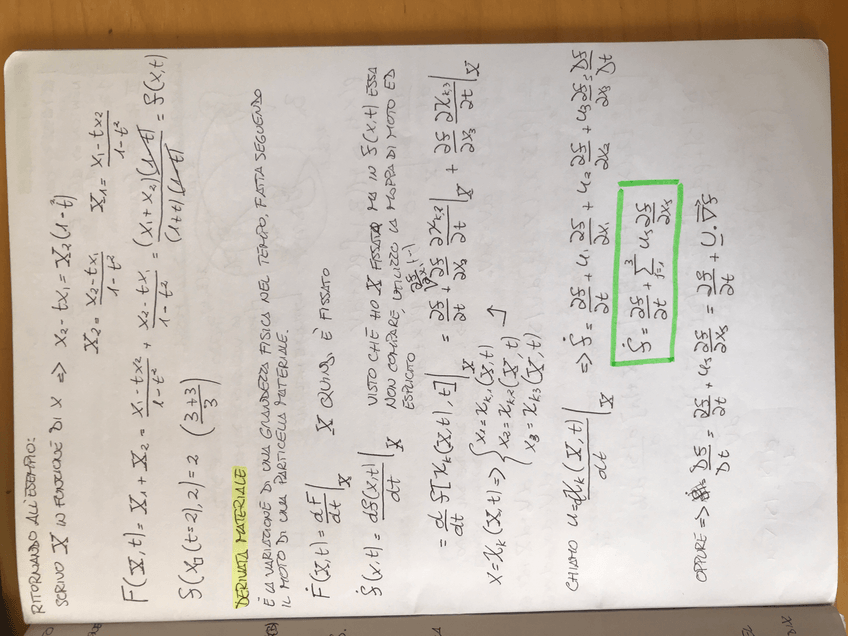 RITORNANDO ALL'ESEMPIO:
SCRIVO X IN FUNZIONE DI x => x₂ - tx₁ = X₂(1-t²)
X₂ = (x₂ - tx₁)/(1-t²) X₁ = (x₁ - tx₂)/(1-t²)
F(X,t) = X₁ + X₂ = (x₁ - tx₂)/(1-t²) + (x₂ - tx₁)/(1-t²) = (x₁+x₂)(1-t)/(1+t)(1-t) = f(x,t)
((3+3)/3)
DERIVATA MATERIALE
È LA VARIAZIONE DI UNA GRANDEZZA FISICA NEL TEMPO, FATTA SEGUENDO
IL MOTO DI UNA PARTICELLA MATERIALE.
Ḟ(X,t) = dF/dt |X X QUINDI È FISSATO
ḟ(x,t) = df(x,t)/dt |X VISTO CHE HO X FISSATO MA IN f(x,t) ESSA
NON COMPARE, UTILIZZO LA MAPPA DI MOTO ED
ESPLICITO
= d/dt f[χₖ(X,t),t] |X = ∂f/∂t + ∂f/∂x₂ ∂χₖ,₂/∂t |X + ∂f/∂x₃ ∂χₖ,₃/∂t |X
x = χₖ(X,t) => { x₁ = χₖ,₁(X,t)
x₂ = χₖ,₂(X,t)
x₃ = χₖ₃(X,t)
CHIAMO u = dχₖ(X,t)/dt |X => ḟ = ∂f/∂t + u₁ ∂f/∂x₁ + u₂ ∂f/∂x₂ + u₃ ∂f/∂x₃ = Df/Dt
ḟ = ∂f/∂t + Σ³ⱼ₌₁ uⱼ ∂f/∂xⱼ
OPPURE => Df/Dt = ∂f/∂t + uⱼ ∂f/∂xⱼ = ∂f/∂t + U · ∇f